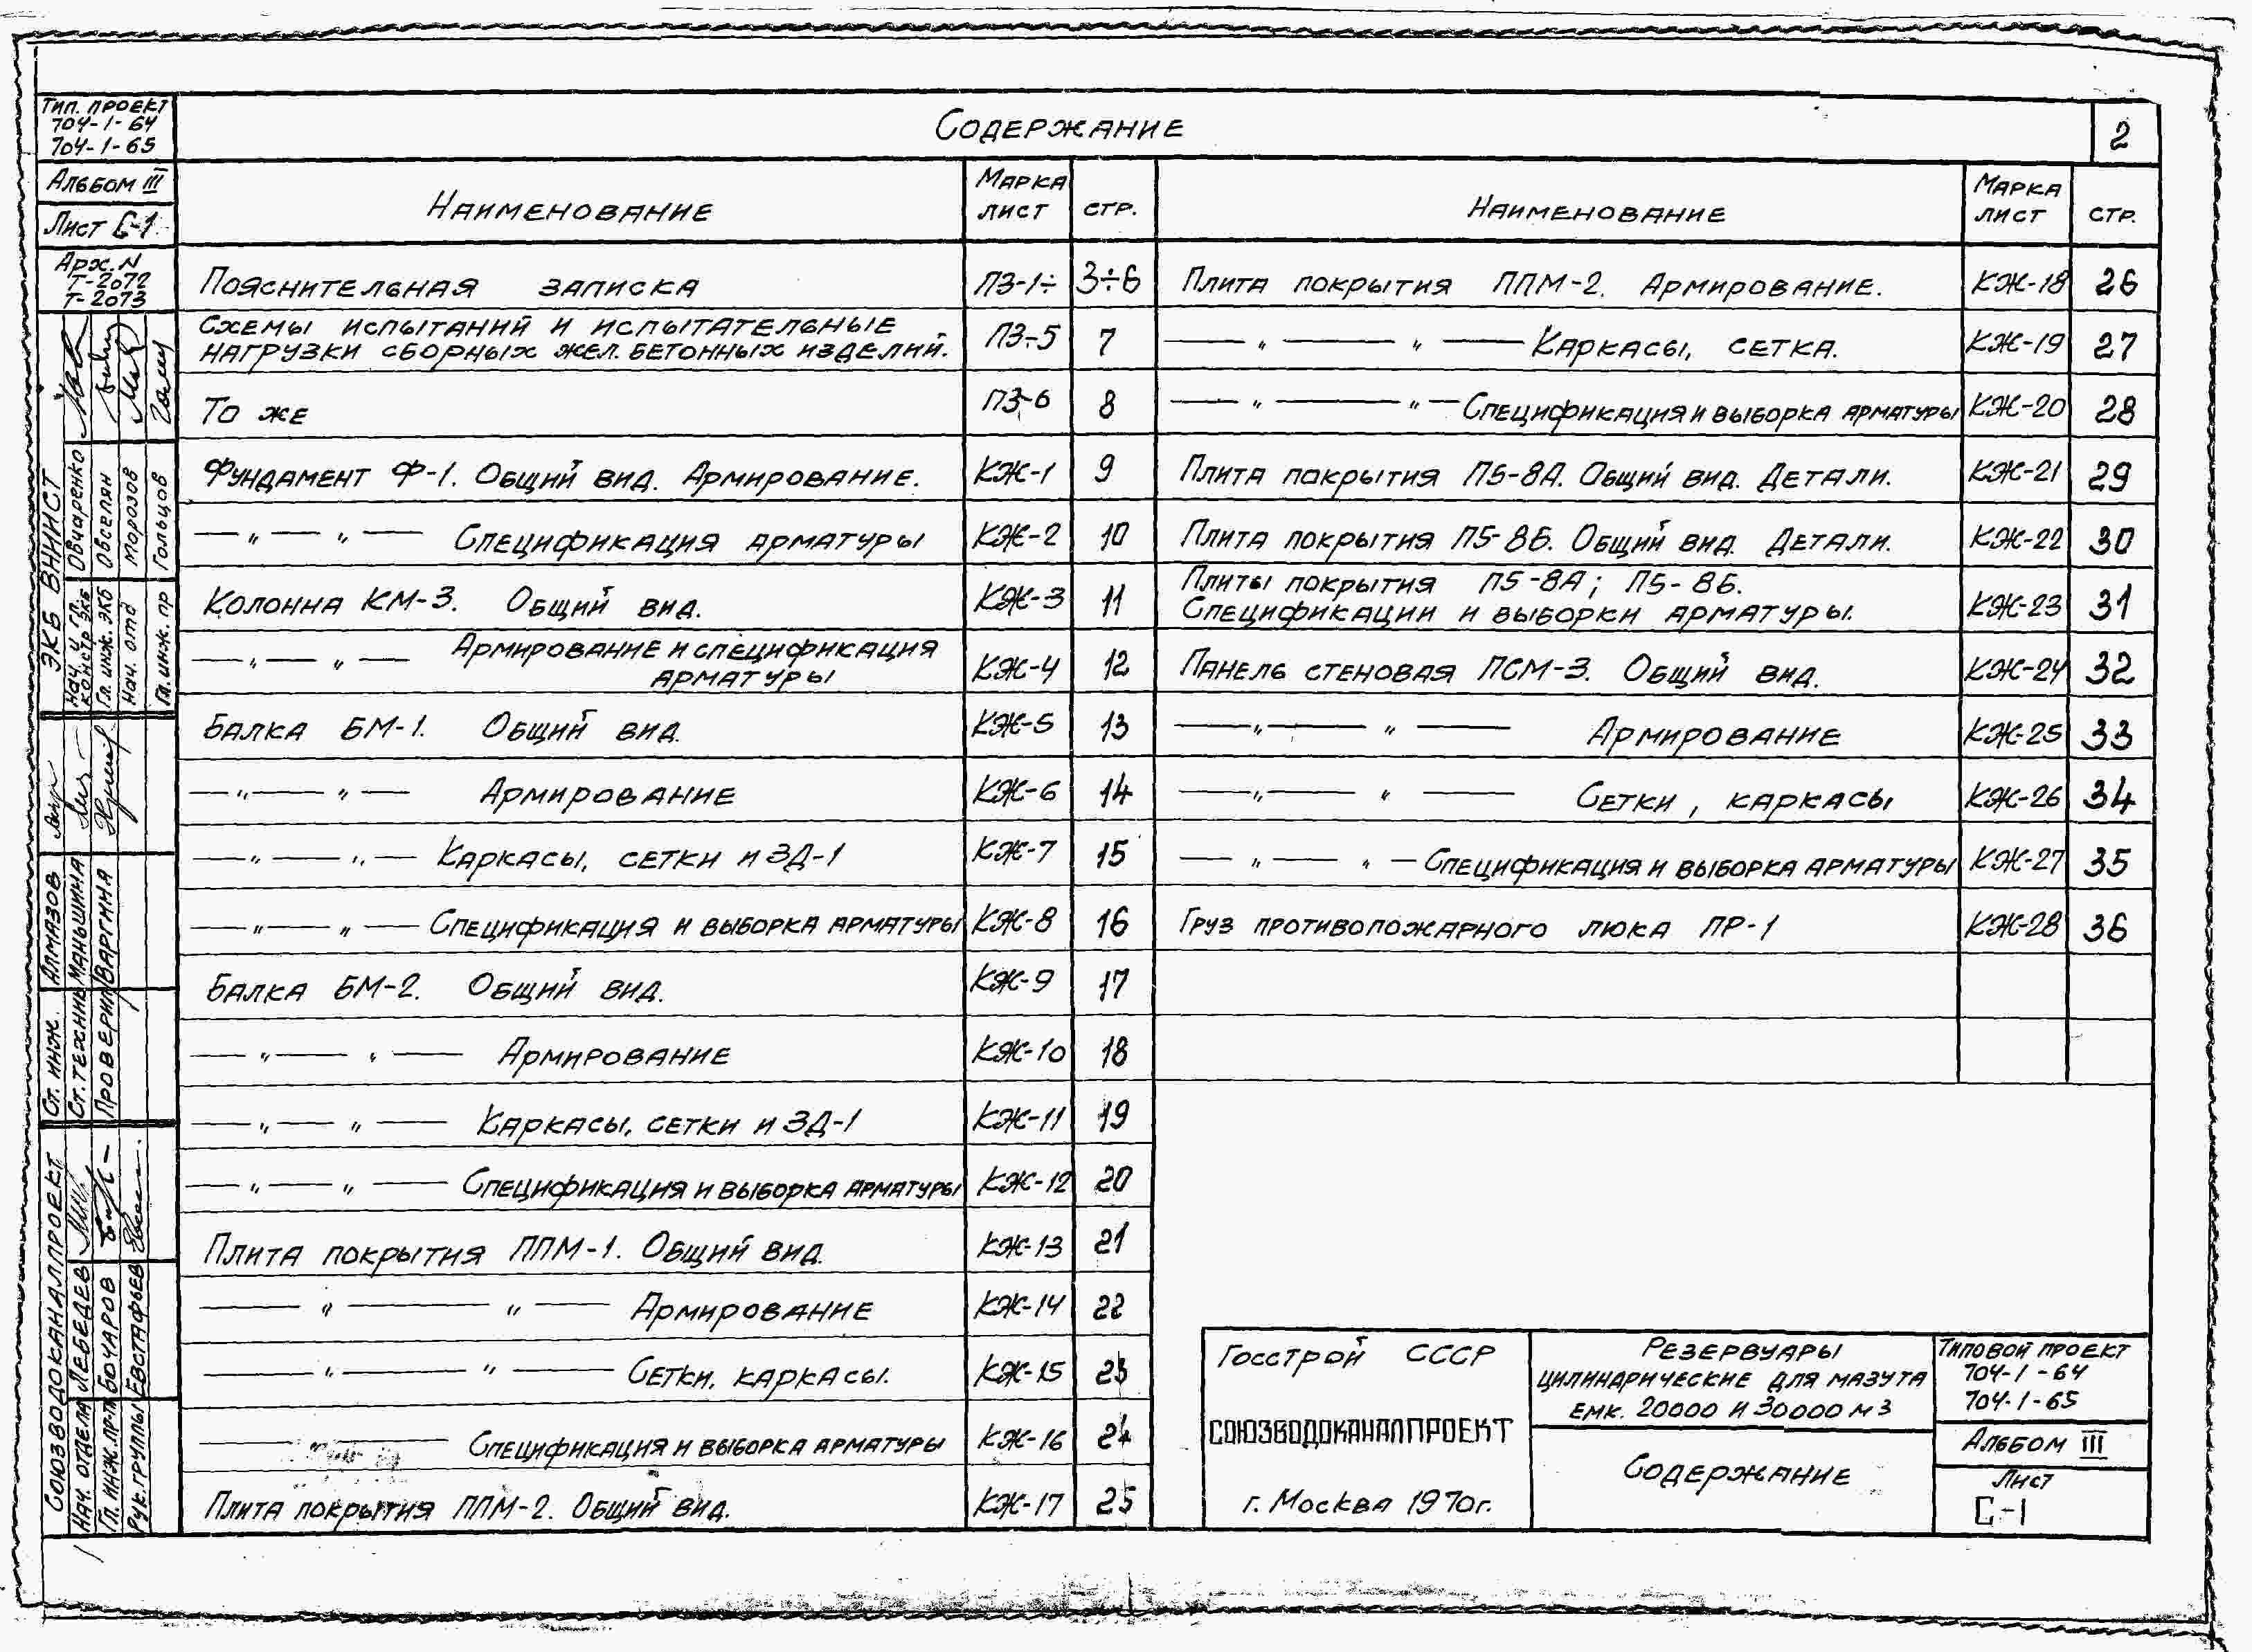 Тип. проект
704-1-64
704-1-65
Альбом III
Лист С-1
Арх. N
Т-2072
Т-2073
ЭКБ ВНИИСТ
Нач. и гл. констр. ЭКБ Овчаренко
Гл. инж. ЭКБ Овселян
Нач. отд Морозов
Гл. инж. пр Гольцов
Ст. инж. Алмазов
Ст. техник Маньшина
Проверил Варгина
Союзводоканалпроект
Нач. отдела Лебедев
Гл. инж. пр-та Бочаров
Рук. группы Евстафьев
Содержание
2
Наименование Марка лист стр.
Пояснительная записка ПЗ-1÷ 3÷6
Схемы испытаний и испытательные
нагрузки сборных жел. бетонных изделий. ПЗ-5 7
То же ПЗ-6 8
Фундамент Ф-1. Общий вид. Армирование. КЖ-1 9
— " — " — Спецификация арматуры КЖ-2 10
Колонна КМ-3. Общий вид. КЖ-3 11
— " — " — Армирование и спецификация
арматуры КЖ-4 12
Балка БМ-1. Общий вид. КЖ-5 13
— " — " — Армирование КЖ-6 14
— " — " — Каркасы, сетки и ЗД-1 КЖ-7 15
— " — " — Спецификация и выборка арматуры КЖ-8 16
Балка БМ-2. Общий вид. КЖ-9 17
— " — " — Армирование КЖ-10 18
— " — " — Каркасы, сетки и ЗД-1 КЖ-11 19
— " — " — Спецификация и выборка арматуры КЖ-12 20
Плита покрытия ППМ-1. Общий вид. КЖ-13 21
— " — " — Армирование КЖ-14 22
— " — " — Сетки, каркасы. КЖ-15 23
— " — Спецификация и выборка арматуры КЖ-16 24
Плита покрытия ППМ-2. Общий вид. КЖ-17 25
Наименование Марка лист стр.
Плита покрытия ППМ-2. Армирование. КЖ-18 26
— " — " — Каркасы, сетка. КЖ-19 27
— " — " — Спецификация и выборка арматуры КЖ-20 28
Плита покрытия П5-8А. Общий вид. Детали. КЖ-21 29
Плита покрытия П5-8Б. Общий вид. Детали. КЖ-22 30
Плиты покрытия П5-8А; П5-8Б.
Спецификации и выборки арматуры. КЖ-23 31
Панель стеновая ПСМ-3. Общий вид. КЖ-24 32
— " — " — Армирование КЖ-25 33
— " — " — Сетки, каркасы КЖ-26 34
— " — " — Спецификация и выборка арматуры КЖ-27 35
Груз противопожарного люка ПР-1 КЖ-28 36
Госстрой СССР
Союзводоканалпроект
г. Москва 1970г.
Резервуары
цилиндрические для мазута
емк. 20000 и 30000 м3
Содержание
Типовой проект
704-1-64
704-1-65
Альбом III
Лист
С-1